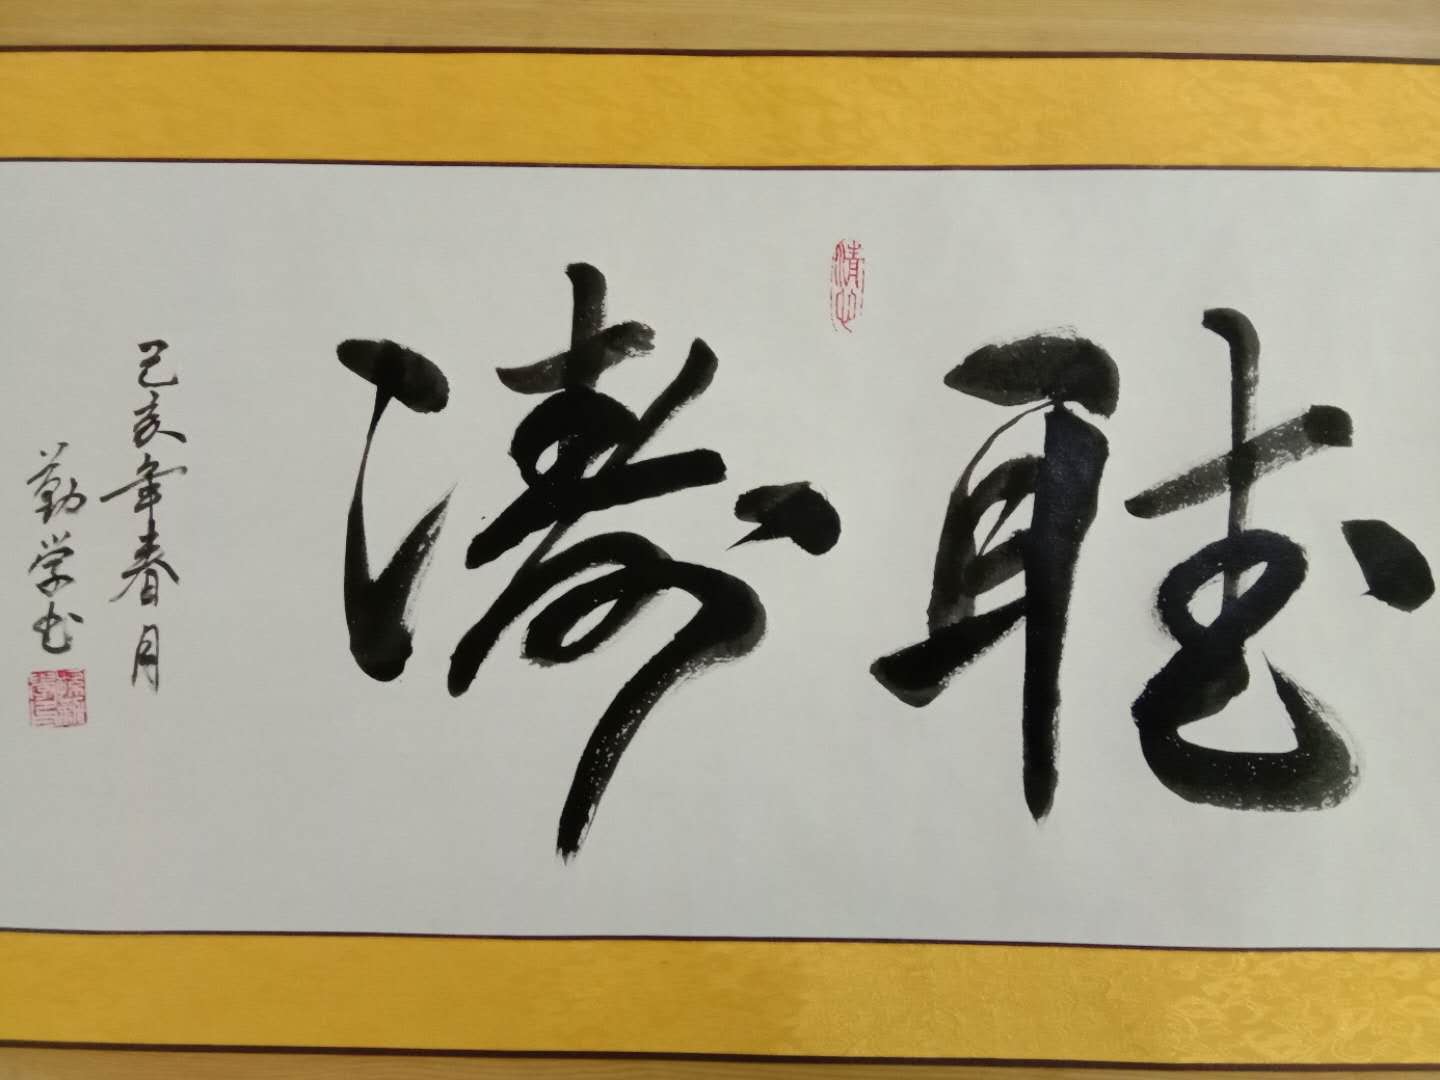 听涛
己亥年春月
勤学书